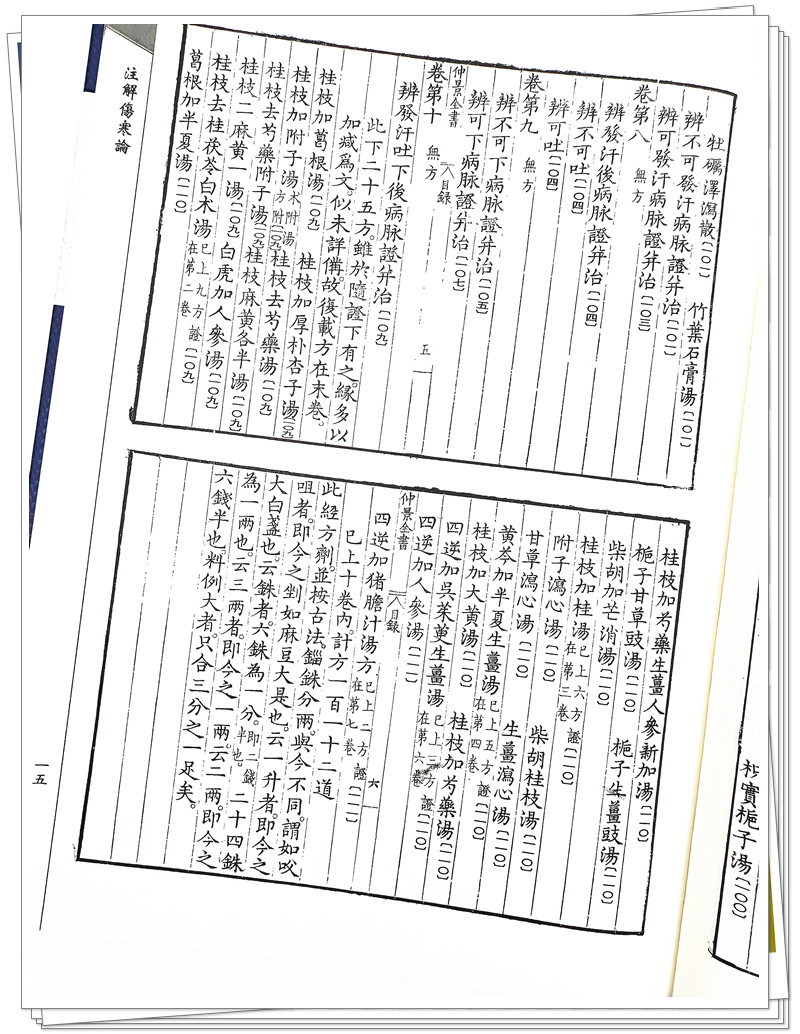 牡礪澤瀉散〔一〇一〕　竹葉石膏湯〔一〇一〕
辨不可發汗病脉證并治〔一〇一〕
辨可發汗病脉證并治〔一〇三〕
卷第八　無方
辨發汗後病脉證并治〔一〇四〕
辨不可吐〔一〇四〕
辨可吐〔一〇四〕
卷第九　無方
辨不可下病脉證并治〔一〇五〕
辨可下病脉證并治〔一〇七〕
仲景全書　目録　五
卷第十　無方
辨發汗吐下後病脉證并治〔一〇九〕
此下二十五方。雖於隨證下有之。緣多以
加減爲文。似未詳備。故復載方在末卷。
桂枝加葛根湯〔一〇九〕　桂枝加厚朴杏子湯〔一〇九〕
桂枝加附子湯术附湯方附〔一〇九〕桂枝去芍藥湯〔一〇九〕
桂枝去芍藥附子湯〔一〇九〕桂枝麻黃各半湯〔一〇九〕
桂枝二麻黃一湯〔一〇九〕白虎加人參湯〔一〇九〕
桂枝去桂茯苓白术湯已上九方證在第二卷〔一〇九〕
葛根加半夏湯〔一一〇〕
注解傷寒論
桂枝加芍藥生薑人參新加湯〔一一〇〕
梔子甘草豉湯〔一一〇〕　梔子生薑豉湯〔一一〇〕
柴胡加芒消湯〔一一〇〕
桂枝加桂湯已上六方證在第三卷〔一一〇〕
附子瀉心湯〔一一〇〕　柴胡桂枝湯〔一一〇〕
甘草瀉心湯〔一一〇〕　生薑瀉心湯〔一一〇〕
黃芩加半夏生薑湯已上五方證在第四卷〔一一〇〕
桂枝加大黃湯〔一一〇〕　桂枝加芍藥湯〔一一〇〕
四逆加吳茱萸生薑湯已上三方證在第六卷〔一一〇〕
四逆加人參湯〔一一一〕
仲景全書　目録　六
四逆加猪膽汁湯方已上二方證在第七卷〔一一一〕
已上十卷内。計方一百一十二道
此經方劑。並按古法。錙銖分兩。與今不同。謂如㕮
咀者。即今之剉如麻豆大是也。云一升者。即今之
大白盞也。云銖者。六銖為一分。即二錢半也。二十四銖
為一兩也。云三兩者。即今之一兩。云二兩。即今之
六錢半也。料例大者。只合三分之一足矣。
一五
枳實梔子湯〔一〇〇〕